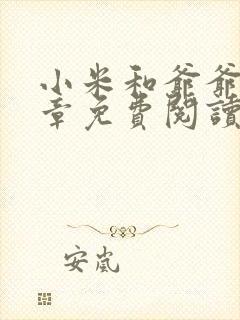 小米和爺爺
章免費閱讀
安嵐